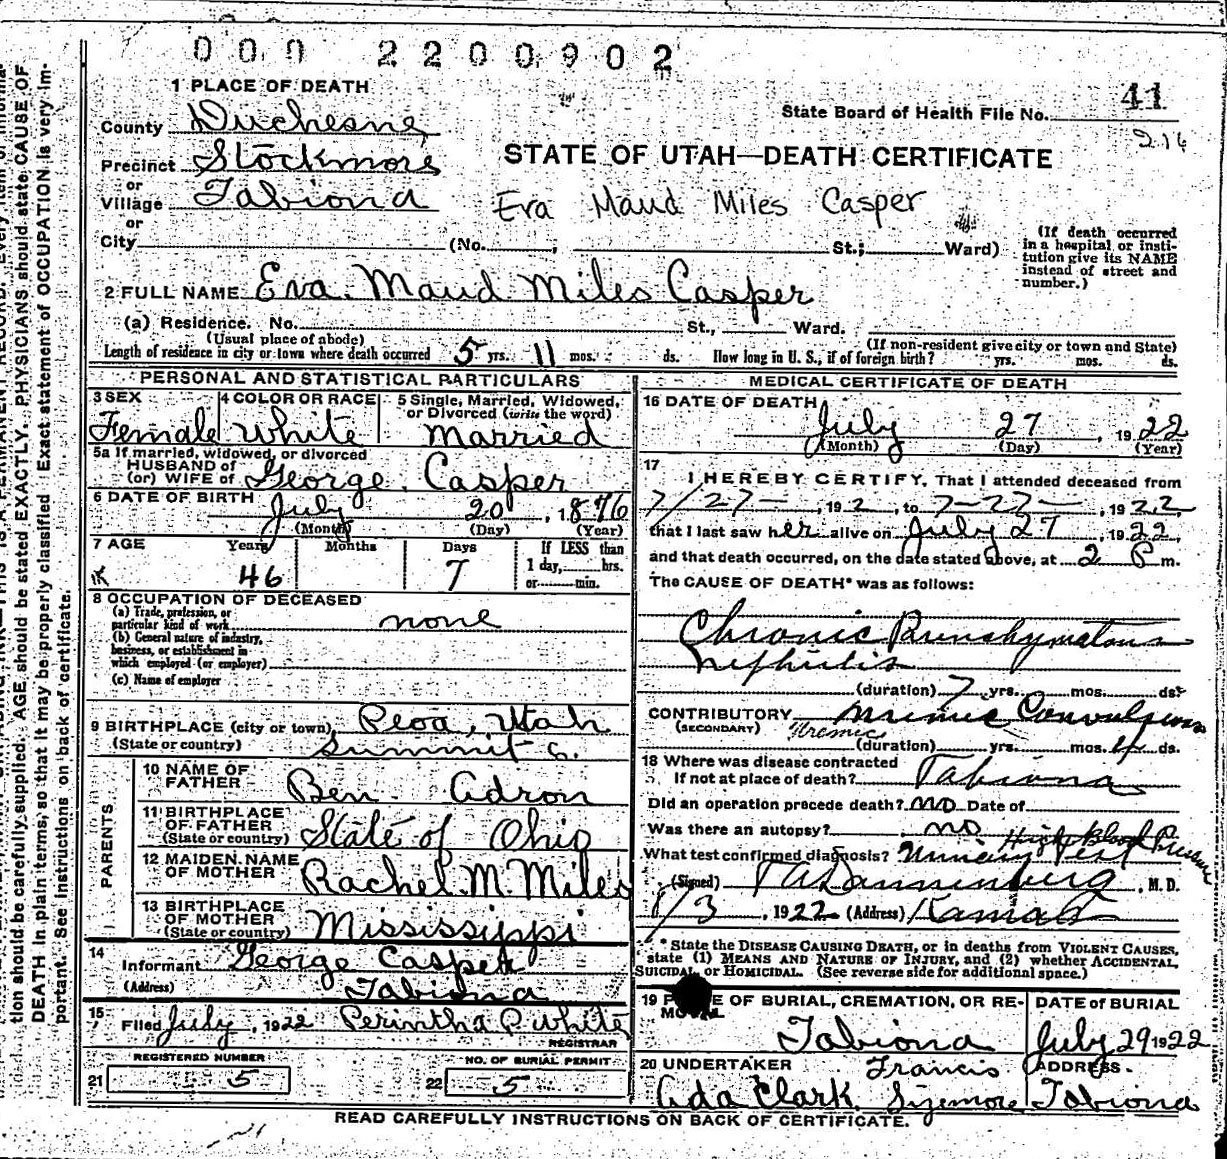 000 2200902
1 PLACE OF DEATH
State Board of Health File No. 41
216
County Duchesne
Precinct Stockmore
STATE OF UTAH—DEATH CERTIFICATE
or
Village Tabiona
Eva Maud Miles Casper
or
City (No. , St.; Ward)
(If death occurred in a hospital or insti-
tution give its NAME instead of street and
number.)
2 FULL NAME Eva Maud Miles Casper
(a) Residence. No. St., Ward.
(Usual place of abode) (If non-resident give city or town and State)
Length of residence in city or town where death occurred 5 yrs. 11 mos. ds. How long in U. S., if of foreign birth? yrs. mos. ds.
PERSONAL AND STATISTICAL PARTICULARS
3 SEX 4 COLOR OR RACE 5 Single, Married, Widowed,
or Divorced (write the word)
Female White Married
5a If married, widowed, or divorced
HUSBAND of
(or) WIFE of George Casper
6 DATE OF BIRTH
July 20, 1876
(Month) (Day) (Year)
7 AGE Years Months Days If LESS than
1 day, hrs.
46 7 or min.
8 OCCUPATION OF DECEASED
(a) Trade, profession, or
particular kind of work none
(b) General nature of industry,
business, or establishment in
which employed (or employer)
(c) Name of employer
9 BIRTHPLACE (city or town) Peoa, Utah
(State or country) Summit Co.
PARENTS
10 NAME OF
FATHER Ben Adron
11 BIRTHPLACE
OF FATHER
(State or country) State of Ohio
12 MAIDEN NAME
OF MOTHER Rachel M. Miles
13 BIRTHPLACE
OF MOTHER
(State or country) Mississippi
14
Informant George Casper
(Address) Tabiona
15
Filed July, 1922 Perintha P. White
REGISTRAR
REGISTERED NUMBER NO. OF BURIAL PERMIT
21 5 22 5
MEDICAL CERTIFICATE OF DEATH
16 DATE OF DEATH
July 27, 1922
(Month) (Day) (Year)
17
I HEREBY CERTIFY, That I attended deceased from
7/27-, 192 , to 7-27-, 1922,
that I last saw her alive on July 27, 1922,
and that death occurred, on the date stated above, at 2 P m.
The CAUSE OF DEATH* was as follows:
Chronic Parenchymatous
Nephritis
(duration) 7 yrs. mos. ds.
CONTRIBUTORY Uremic Convulsions
(SECONDARY) Uremic
(duration) yrs. mos. ds.
18 Where was disease contracted
If not at place of death? Tabiona
Did an operation precede death? No Date of
Was there an autopsy? no
High Blood Pressure
What test confirmed diagnosis? Urinary Test
(Signed) , M. D.
8/3, 1922 (Address) Kamas
* State the DISEASE CAUSING DEATH, or in deaths from VIOLENT CAUSES,
state (1) MEANS AND NATURE OF INJURY, and (2) whether ACCIDENTAL,
SUICIDAL, or HOMICIDAL. (See reverse side for additional space.)
19 OF BURIAL, CREMATION, OR RE- DATE of BURIAL
Tabiona July 29 1922
20 UNDERTAKER Francis ADDRESS
Ada Clark Sizemore Tabiona
READ CAREFULLY INSTRUCTIONS ON BACK OF CERTIFICATE.
tion should be carefully supplied. AGE should be stated EXACTLY. PHYSICIANS should state CAUSE OF
DEATH in plain terms, so that it may be properly classified. Exact statement of OCCUPATION is very im-
portant. See instructions on back of certificate.